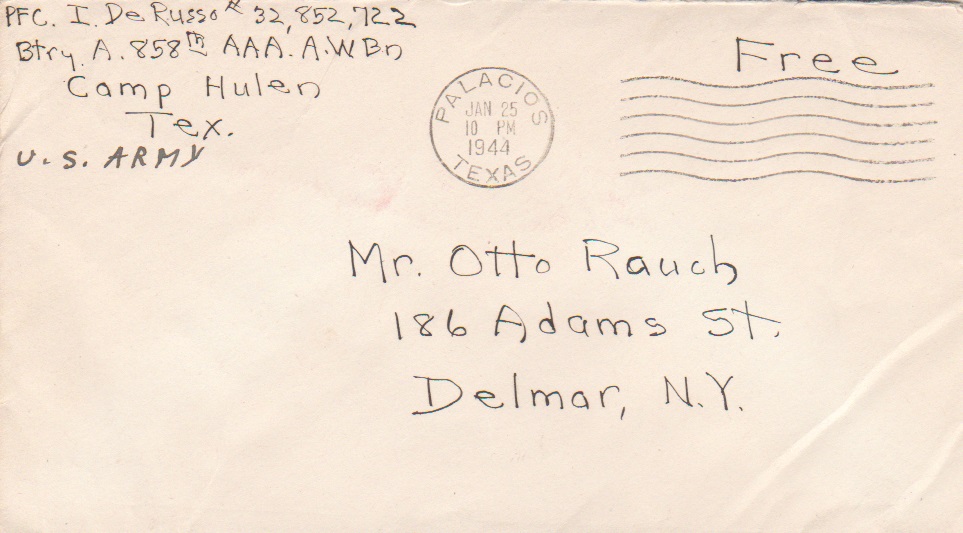 PFC. I. De Russo # 32,852,722
Btry. A. 858th AAA. A.W Bn
Camp Hulen
Tex.
U.S. ARMY
PALACIOS
JAN 25
10 PM
1944
TEXAS
Free
Mr. Otto Rauch
186 Adams St.
Delmar, N.Y.